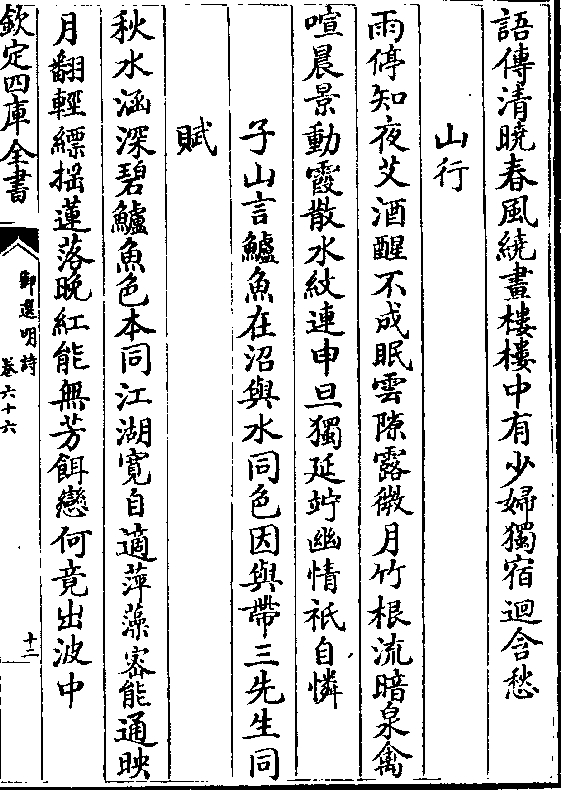 語傳清曉春風繞畫樓樓中有少婦獨宿迴含愁
山行
雨停知夜艾酒醒不成眠雲隙露微月竹根流暗泉禽
喧晨景動霞散水紋連申旦獨延竚幽情祇自憐
子山言鱸魚在沼與水同色因與帶三先生同
賦
秋水涵深碧鱸魚色本同江湖寬自適萍藻密能通映
月翻輕縹揺蓮落晚紅能無芳餌戀何竟出波中
欽定四庫全書
御選明詩
卷六十六
十二